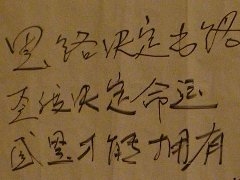 思路决定出路
决定命运
感恩才能拥有